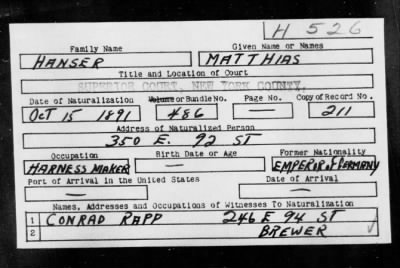 H 526
Family Name Given Name or Names
HANSER MATTHIAS
Title and Location of Court
SUPERIOR COURT, NEW YORK COUNTY.
Date of Naturalization Volume or Bundle No. Page No. Copy of Record No.
OCT 15 1891 486 — 211
Address of Naturalized Person
350 E. 92 ST
Occupation Birth Date or Age Former Nationality
HARNESS MAKER — EMPEROR of GERMANY
Port of Arrival in the United States Date of Arrival
— —
Names, Addresses and Occupations of Witnesses To Naturalization
1 CONRAD RAPP 246 E 94 ST
2 BREWER